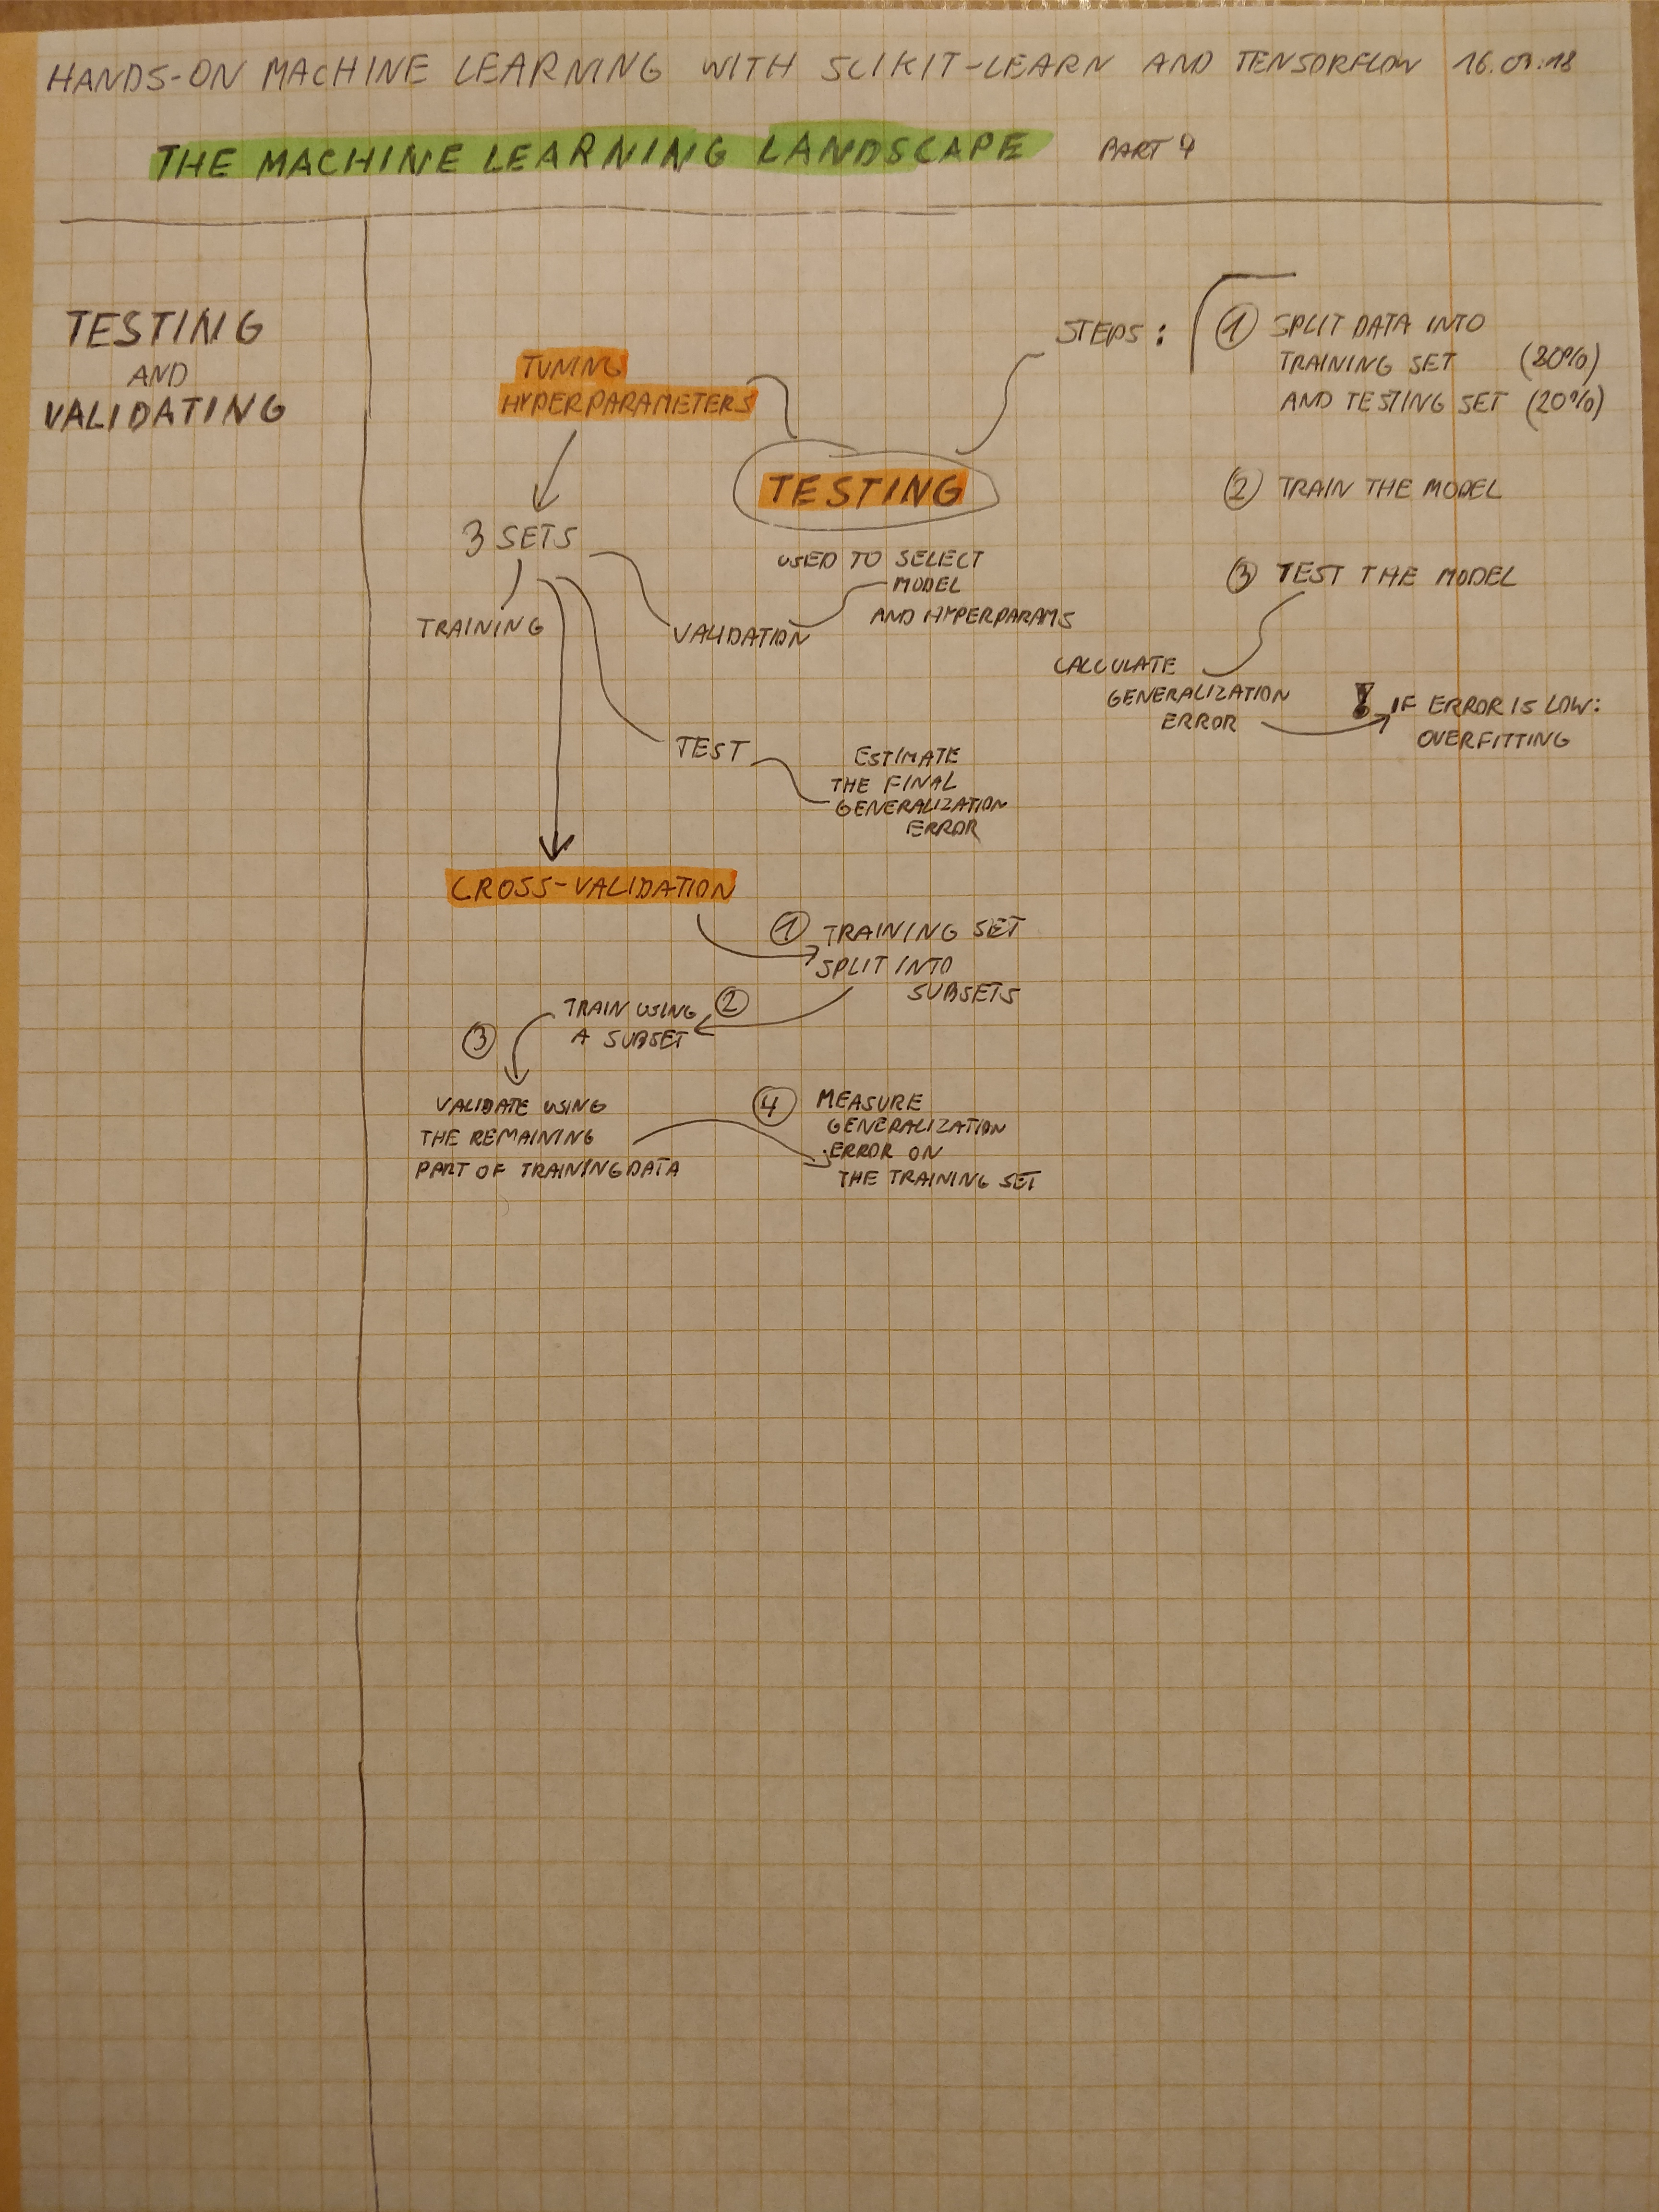 HANDS-ON MACHINE LEARNING WITH SCIKIT-LEARN AND TENSORFLOW 16.09.18
THE MACHINE LEARNING LANDSCAPE PART 4
TESTING
AND
VALIDATING
TUNING
HYPERPARAMETERS
TESTING
STEPS:
1 SPLIT DATA INTO
TRAINING SET (80%)
AND TESTING SET (20%)
2 TRAIN THE MODEL
3 TEST THE MODEL
CALCULATE
GENERALIZATION
ERROR
! IF ERROR IS LOW:
OVERFITTING
3 SETS
TRAINING
VALIDATION
USED TO SELECT
MODEL
AND HYPERPARAMS
TEST
ESTIMATE
THE FINAL
GENERALIZATION
ERROR
CROSS-VALIDATION
1 TRAINING SET
SPLIT INTO
SUBSETS
2
TRAIN USING
A SUBSET
3
VALIDATE USING
THE REMAINING
PART OF TRAINING DATA
4 MEASURE
GENERALIZATION
ERROR ON
THE TRAINING SET